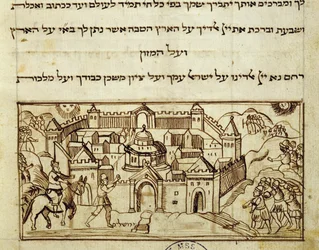 לך ומברכים אותך יתברך שמך בפי כל חי תמיד לעולם ועד ככתוב ואכלת
ושבעת וברכת את ייי אלדיך על הארץ הטבה אשר נתן לך באי על הארץ
ועל המזון
רחם נא ייי אלדינו על ישראל עמך ועל ציון משכן כבודך ועל מלכות
ירושלים
MSS